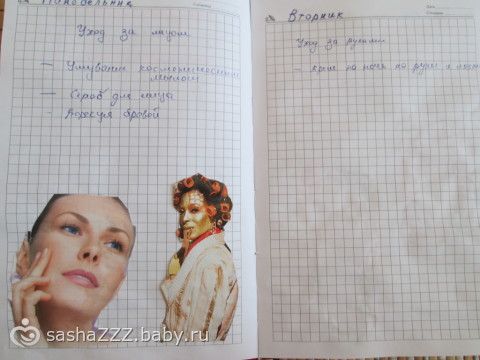 Понедельник
Уход за лицом
— Умывание космотическим
мылом
— Скраб для лица
- Коррекция бровей
Вторник
Уход за руками
- крем на ночь на руки и
sashaZZZ.baby.ru